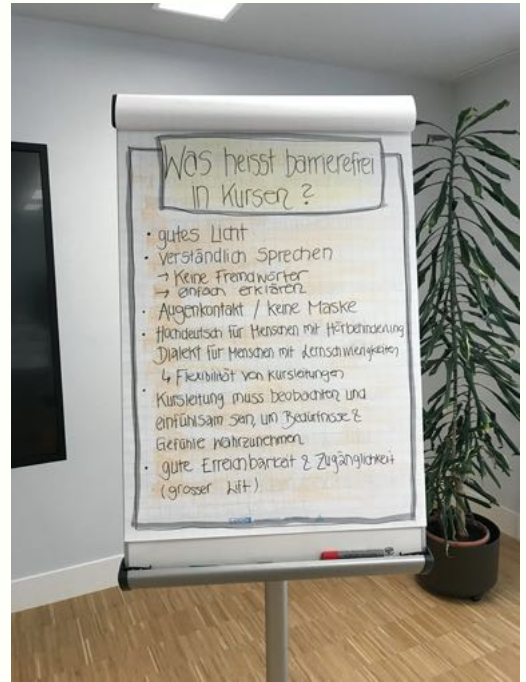 Was heisst barrierefrei
in Kursen?
• gutes Licht
• verständlich Sprechen
→ Keine Fremdwörter
→ einfach erklären
• Augenkontakt / keine Maske
• Hochdeutsch für Menschen mit Hörbehinderung
Dialekt für Menschen mit Lernschwierigkeiten
↳ Flexibilität von Kursleitungen
• Kursleitung muss beobachten und
einfühlsam sein, um Bedürfnisse &
Gefühle wahrzunehmen
• gute Erreichbarkeit & Zugänglichkeit
(grosser Lift)